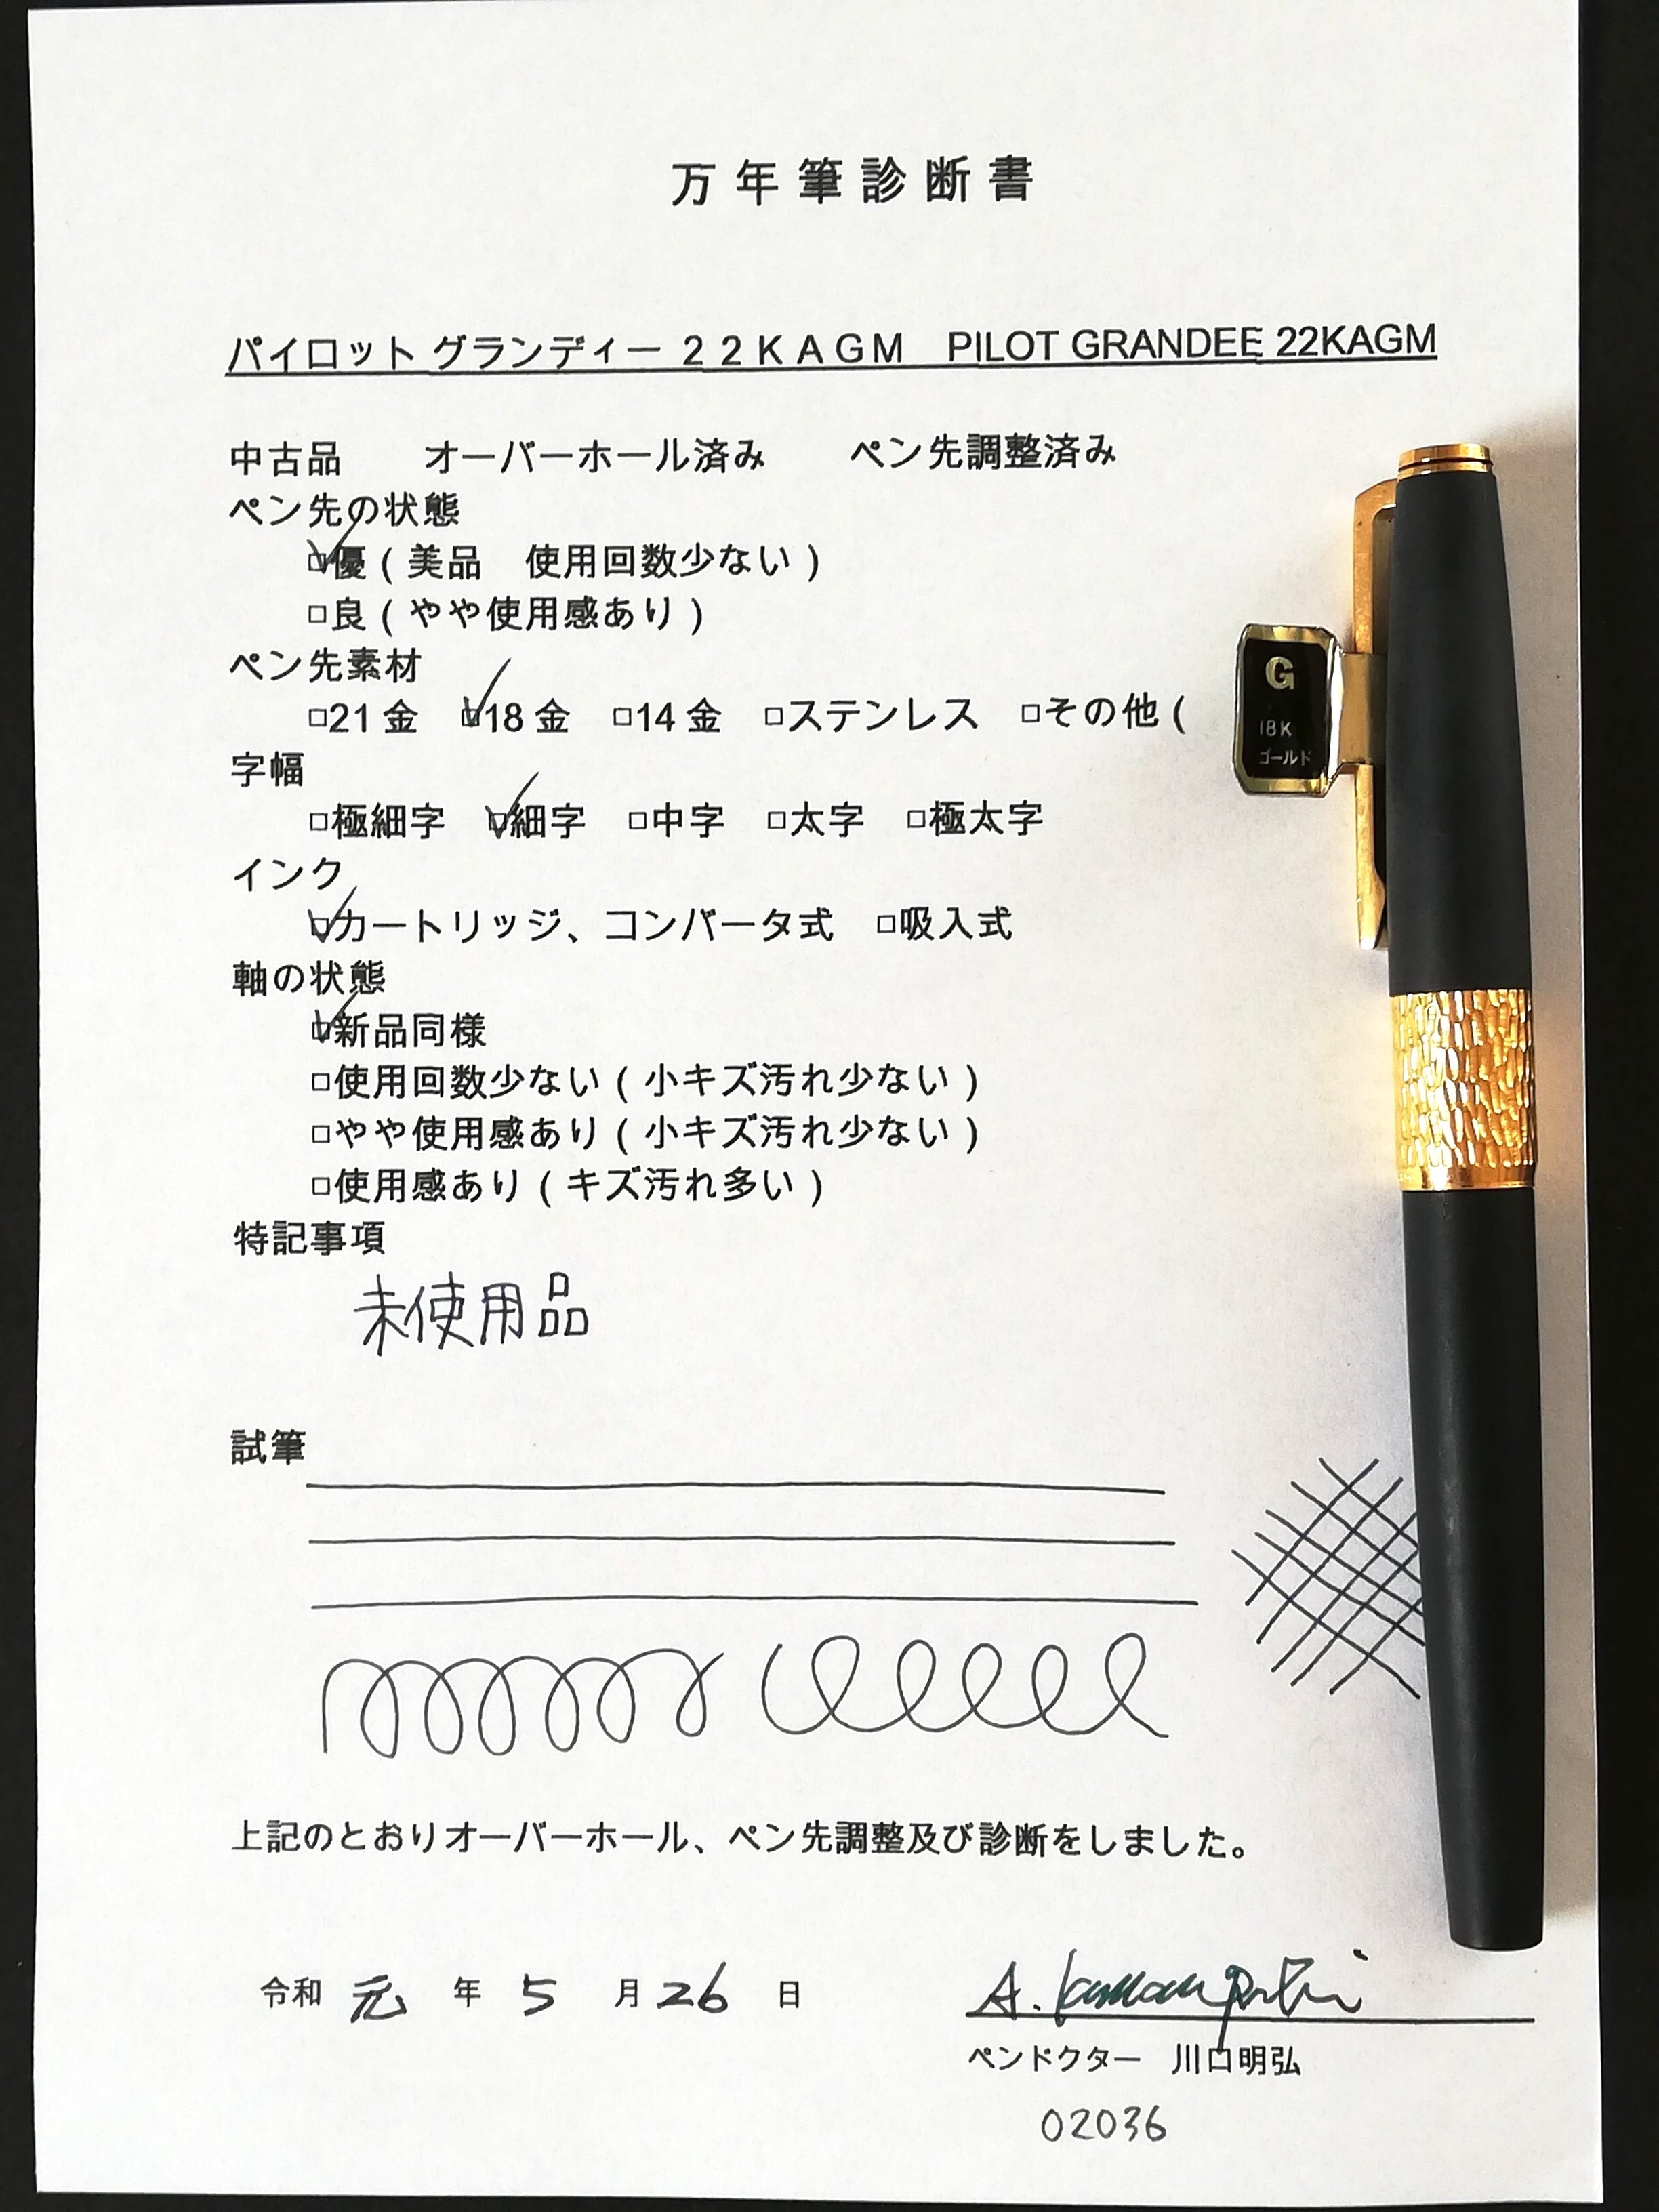 万年筆診断書
パイロット グランディー 22KAGM　PILOT GRANDEE 22KAGM
中古品　オーバーホール済み　ペン先調整済み
ペン先の状態
☑優（美品　使用回数少ない）
□良（やや使用感あり）
ペン先素材
□21金　☑18金　□14金　□ステンレス　□その他（
字幅
□極細字　☑細字　□中字　□太字　□極太字
インク
☑カートリッジ、コンバータ式　□吸入式
軸の状態
☑新品同様
□使用回数少ない（小キズ汚れ少ない）
□やや使用感あり（小キズ汚れ少ない）
□使用感あり（キズ汚れ多い）
特記事項
未使用品
試筆
上記のとおりオーバーホール、ペン先調整及び診断をしました。
令和 元 年 5 月 26 日
A. Kawaguchi
ペンドクター　川口明弘
02036
G
18K
ゴールド